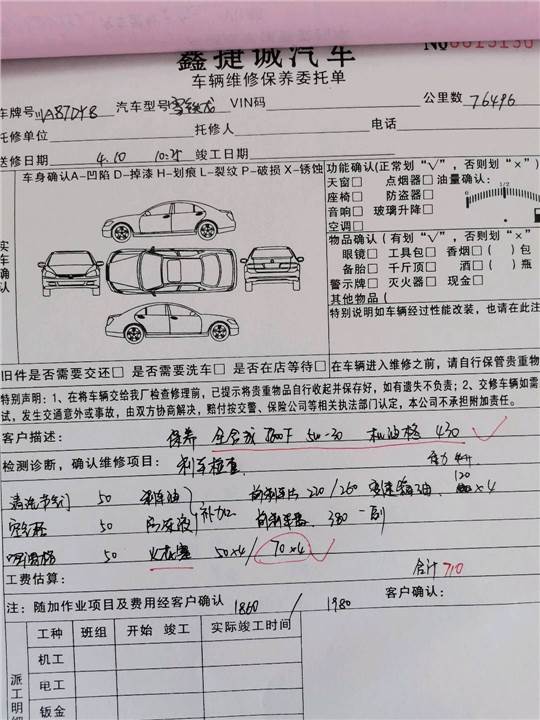 鑫捷诚汽车
车辆维修保养委托单
No 0015130
车牌号 川A87D48 汽车型号 雪铁龙 VIN码 公里数 76496
托修单位 托修人 电话
送修日期 4.10 10:25 竣工日期
车身确认A-凹陷 D-掉漆 H-划痕 L-裂纹 P-破损 X-锈蚀
实车确认
功能确认(正常划“√”,否则划“×”)
天窗□ 点烟器□ 油量确认:
座椅□ 防盗器□ 1/2
音响□ 玻璃升降□
空调□
物品确认(有划“√”,否则划“×”
眼镜□ 工具包□ 香烟□( )包
备胎□ 千斤顶□ 酒□( )瓶
警示牌□ 灭火器□ 现金□
其他物品(
特别说明如车辆经过性能改装,也请在此注
旧件是否需要交还□ 是否需要洗车□ 是否在店等待□ 在车辆进入维修之前,请自行保管贵重物
特别声明:1、在将车辆交给我厂检查修理前,已提示将贵重物品自行收起并保存好,如有遗失不负责;2、交修车辆如需
试,发生交通意外或事故,由双方协商解决,赔付按交警、保险公司等相关执法部门认定,本公司不承担附加责任。
客户描述: 保养 全合成 5W-30 机油格 430
检测诊断,确认维修项目: 刹车检查
清洗节气门 50 刹车油 补加 前刹车片 220/260 变速箱油 120 ×4
空气格 50 防冻液 前刹车盘 380 一副
50 火花塞 50×4/ 70×4
工费估算: 合计 710
注:随加作业项目及费用经客户确认 1860 / 1980 客户确认:
派工明细
工种 班组 开始 竣工 实际竣工时间
机工
电工
钣金